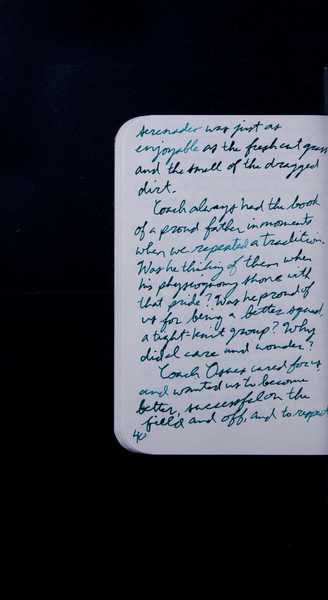 serenader was just as
enjoyable as the fresh cut grass
and the smell of the dragged
dirt.
Coach always had the look
of a proud father in moments
when we repeated a tradition.
Was he thinking of them when
his physiognomy shone with
that pride? Was he proud of
us for being a better squad,
a tight-knit group? Why
did I care and wonder?
Coach cared for us
and wanted us to become
better, successful on the
field and off, and to respect
40